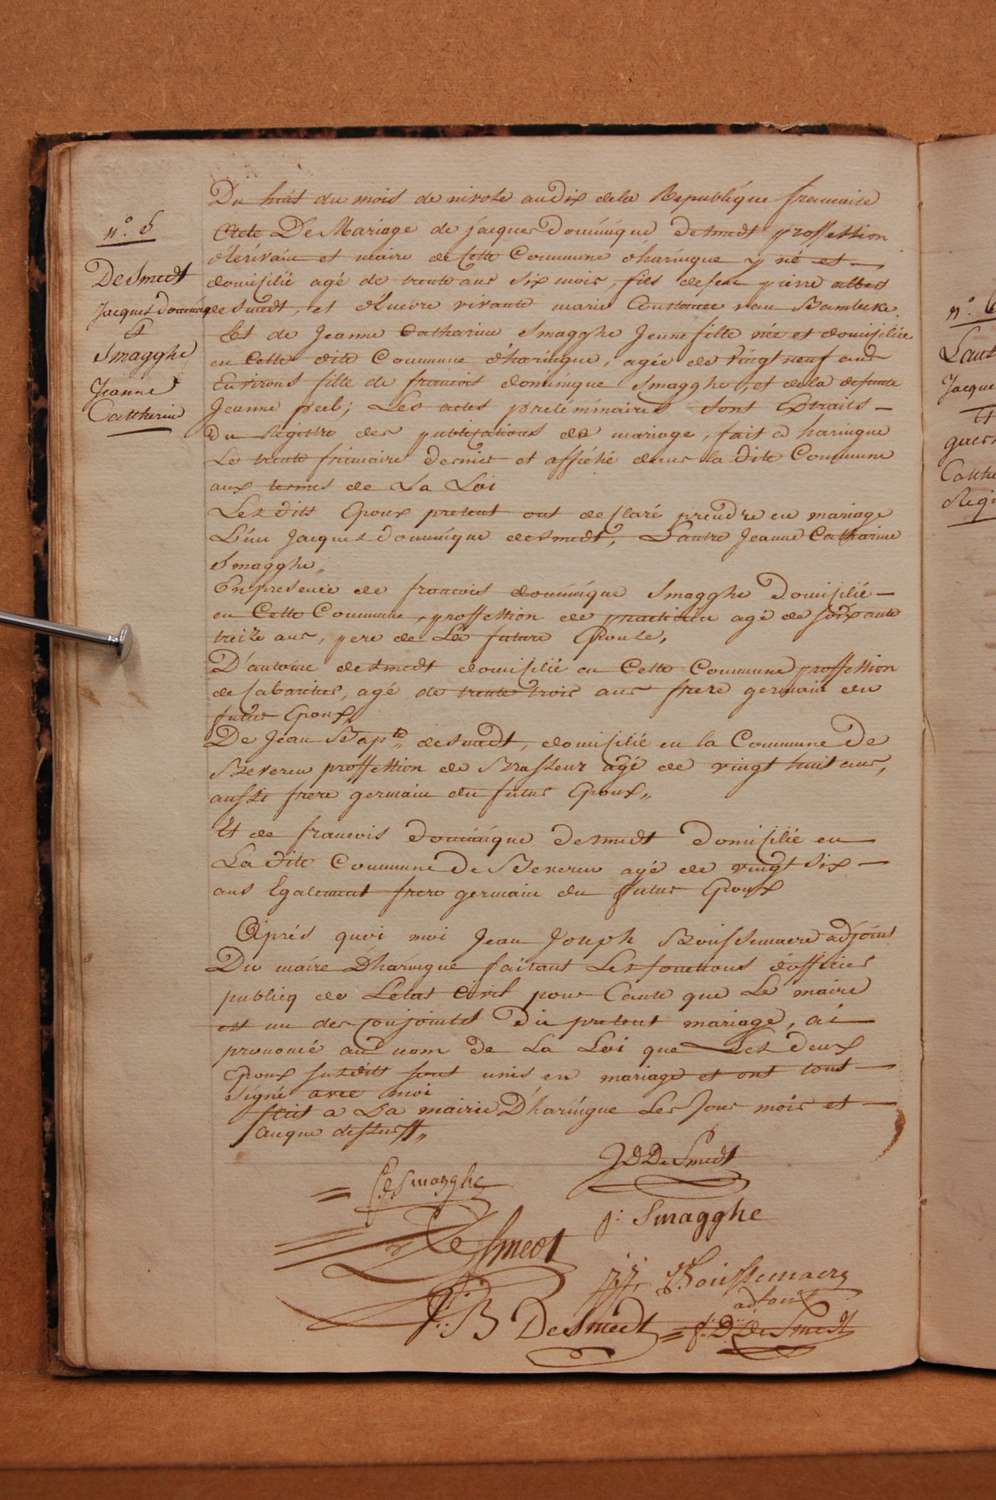 n.° 5
DeSmedt
Jacques dominiq
&
Smagghe
Jeanne
Catherine
Du huit du mois de nivose an dix de la Republique francaise
Acte De Mariage de jacques Dominique desmedt proffession
d'ecrivain et maire de cette Commune d'haringue y né et —
domicilié agé de trente ans six mois, fils de feu pierre albert
desmedt, et de vivante marie Constance van Bambeke
Et de Jeanne Catharine Smagghe Jeune fille née et domiciliée
en Cette dite Commune d'haringue, agée de vingt neuf ans
Environs fille de francois dominique Smagghe, et de la defunte
Jeanne peel; Les actes preliminaires sont Extraits —
Du Régistre des publications de mariage, fait a haringue
Le trente frimaire dernier et affiché dans la dite Commune
aux termes de La Loi
Lesdits Epoux present ont declaré prendre en mariage
L'un Jacques Dominique desmedt, L'autre Jeanne Catharine
Smagghe,,
En presence de francois dominique Smagghe Domicilié —
en Cette Commune, proffession de praticien agé de soixante
treize ans, pere de La future Epouse,
D'antoine desmedt domicilié en Cette Commune proffession
de Cabaretier, agé de trente trois ans frere germain du
futur Epoux,,
De Jean Bapte. desmedt, domicilié en la Commune De
Beveren proffession de Brasseur agé de vingt huit ans,
aussi frere germain du futur Epoux,,
Et de francois dominique desmedt domicilié en
La dite Commune De Beveren agé de vingt six —
ans Egalement frere germain du futur Epoux
Aprés quoi moi Jean Joseph Boussemaere adjoint
Du maire D'haringue faisant Les fonctions d'officier
publicq de L'etat Civil pour Cause que Le maire
est un des Conjoints Du present mariage, ai
prononcé au nom de La Loi que Les deux
Epoux susdits sont unis en mariage et ont tous —
signé avec moi
fait a La mairie D'haringue Les Jour mois et —
an que dessus,,
JDDeSmedt
Smagghe
j: Smagghe
DeSmedt
jj: Boussemaere
adjoint
J: B DeSmedt
f: D: DeSmedt
n.° 6
Jacque
Et
Cathe